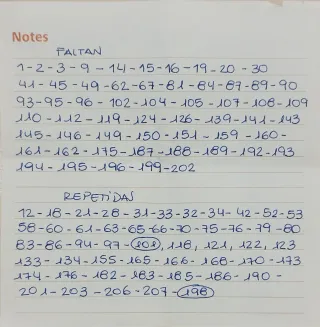 Notes
FALTAN
1-2-3-9-14-15-16-19-20-30
41-45-49-62-67-81-84-87-89-90
93-95-96-102-104-105-107-108-109
110-112-119-124-126-139-141-143
145-146-149-150-151-159-160-
161-162-175-187-188-189-192-193
194-195-196-199-202
REPETIDAS
12-18-21-28-31-33-32-34-42-52-53
58-60-61-63-65-66-70-75-76-79-80
83-86-94-97-101, 118, 121, 122, 123
133-134-155-165-166-168-170-173
174-176-182-183-185-186-190-
201-203-206-207-198